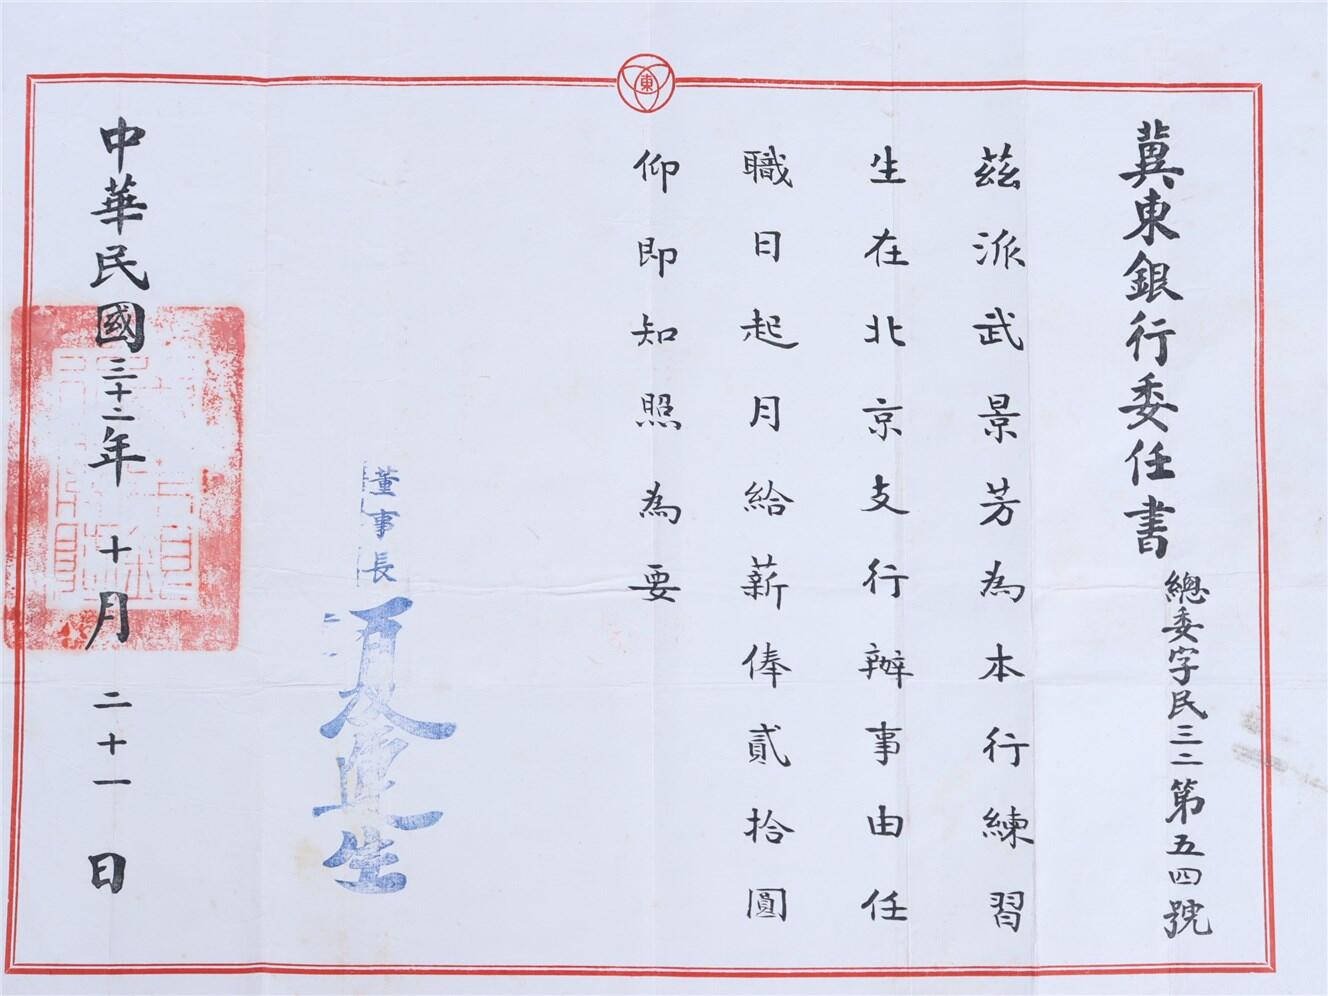 東
冀東銀行委任書
總委字民三二第五四號
茲派武景芳為本行練習
生在北京支行辦事由任
職日起月給薪俸貳拾圓
仰即知照為要
董事長
中華民國三十二年 十月 二十一 日